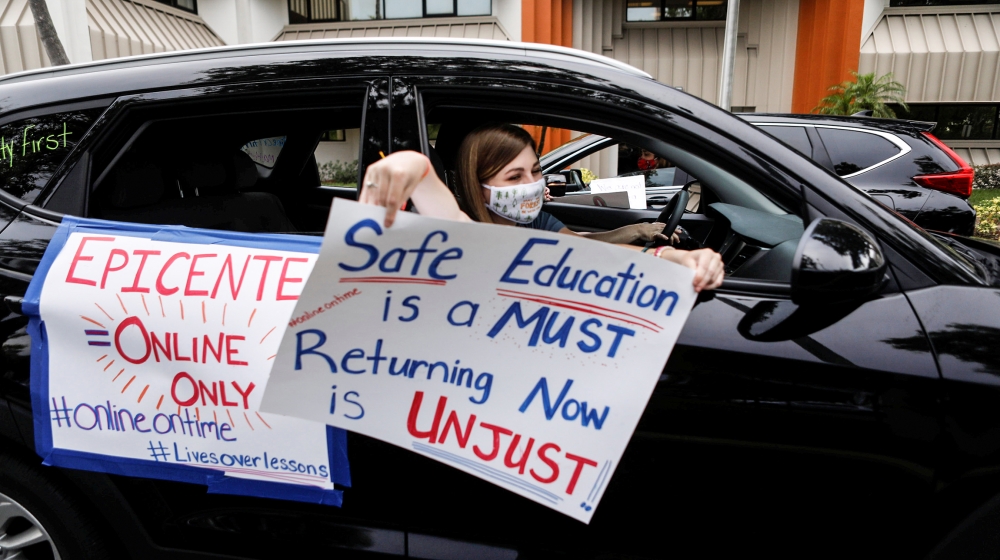 ly first
EPICENTE
= ONLINE
ONLY
#onlineontime
#Livesoverlessons
Safe Education
#onlineontime
is a MUST
Returning Now
is UNJUST!!